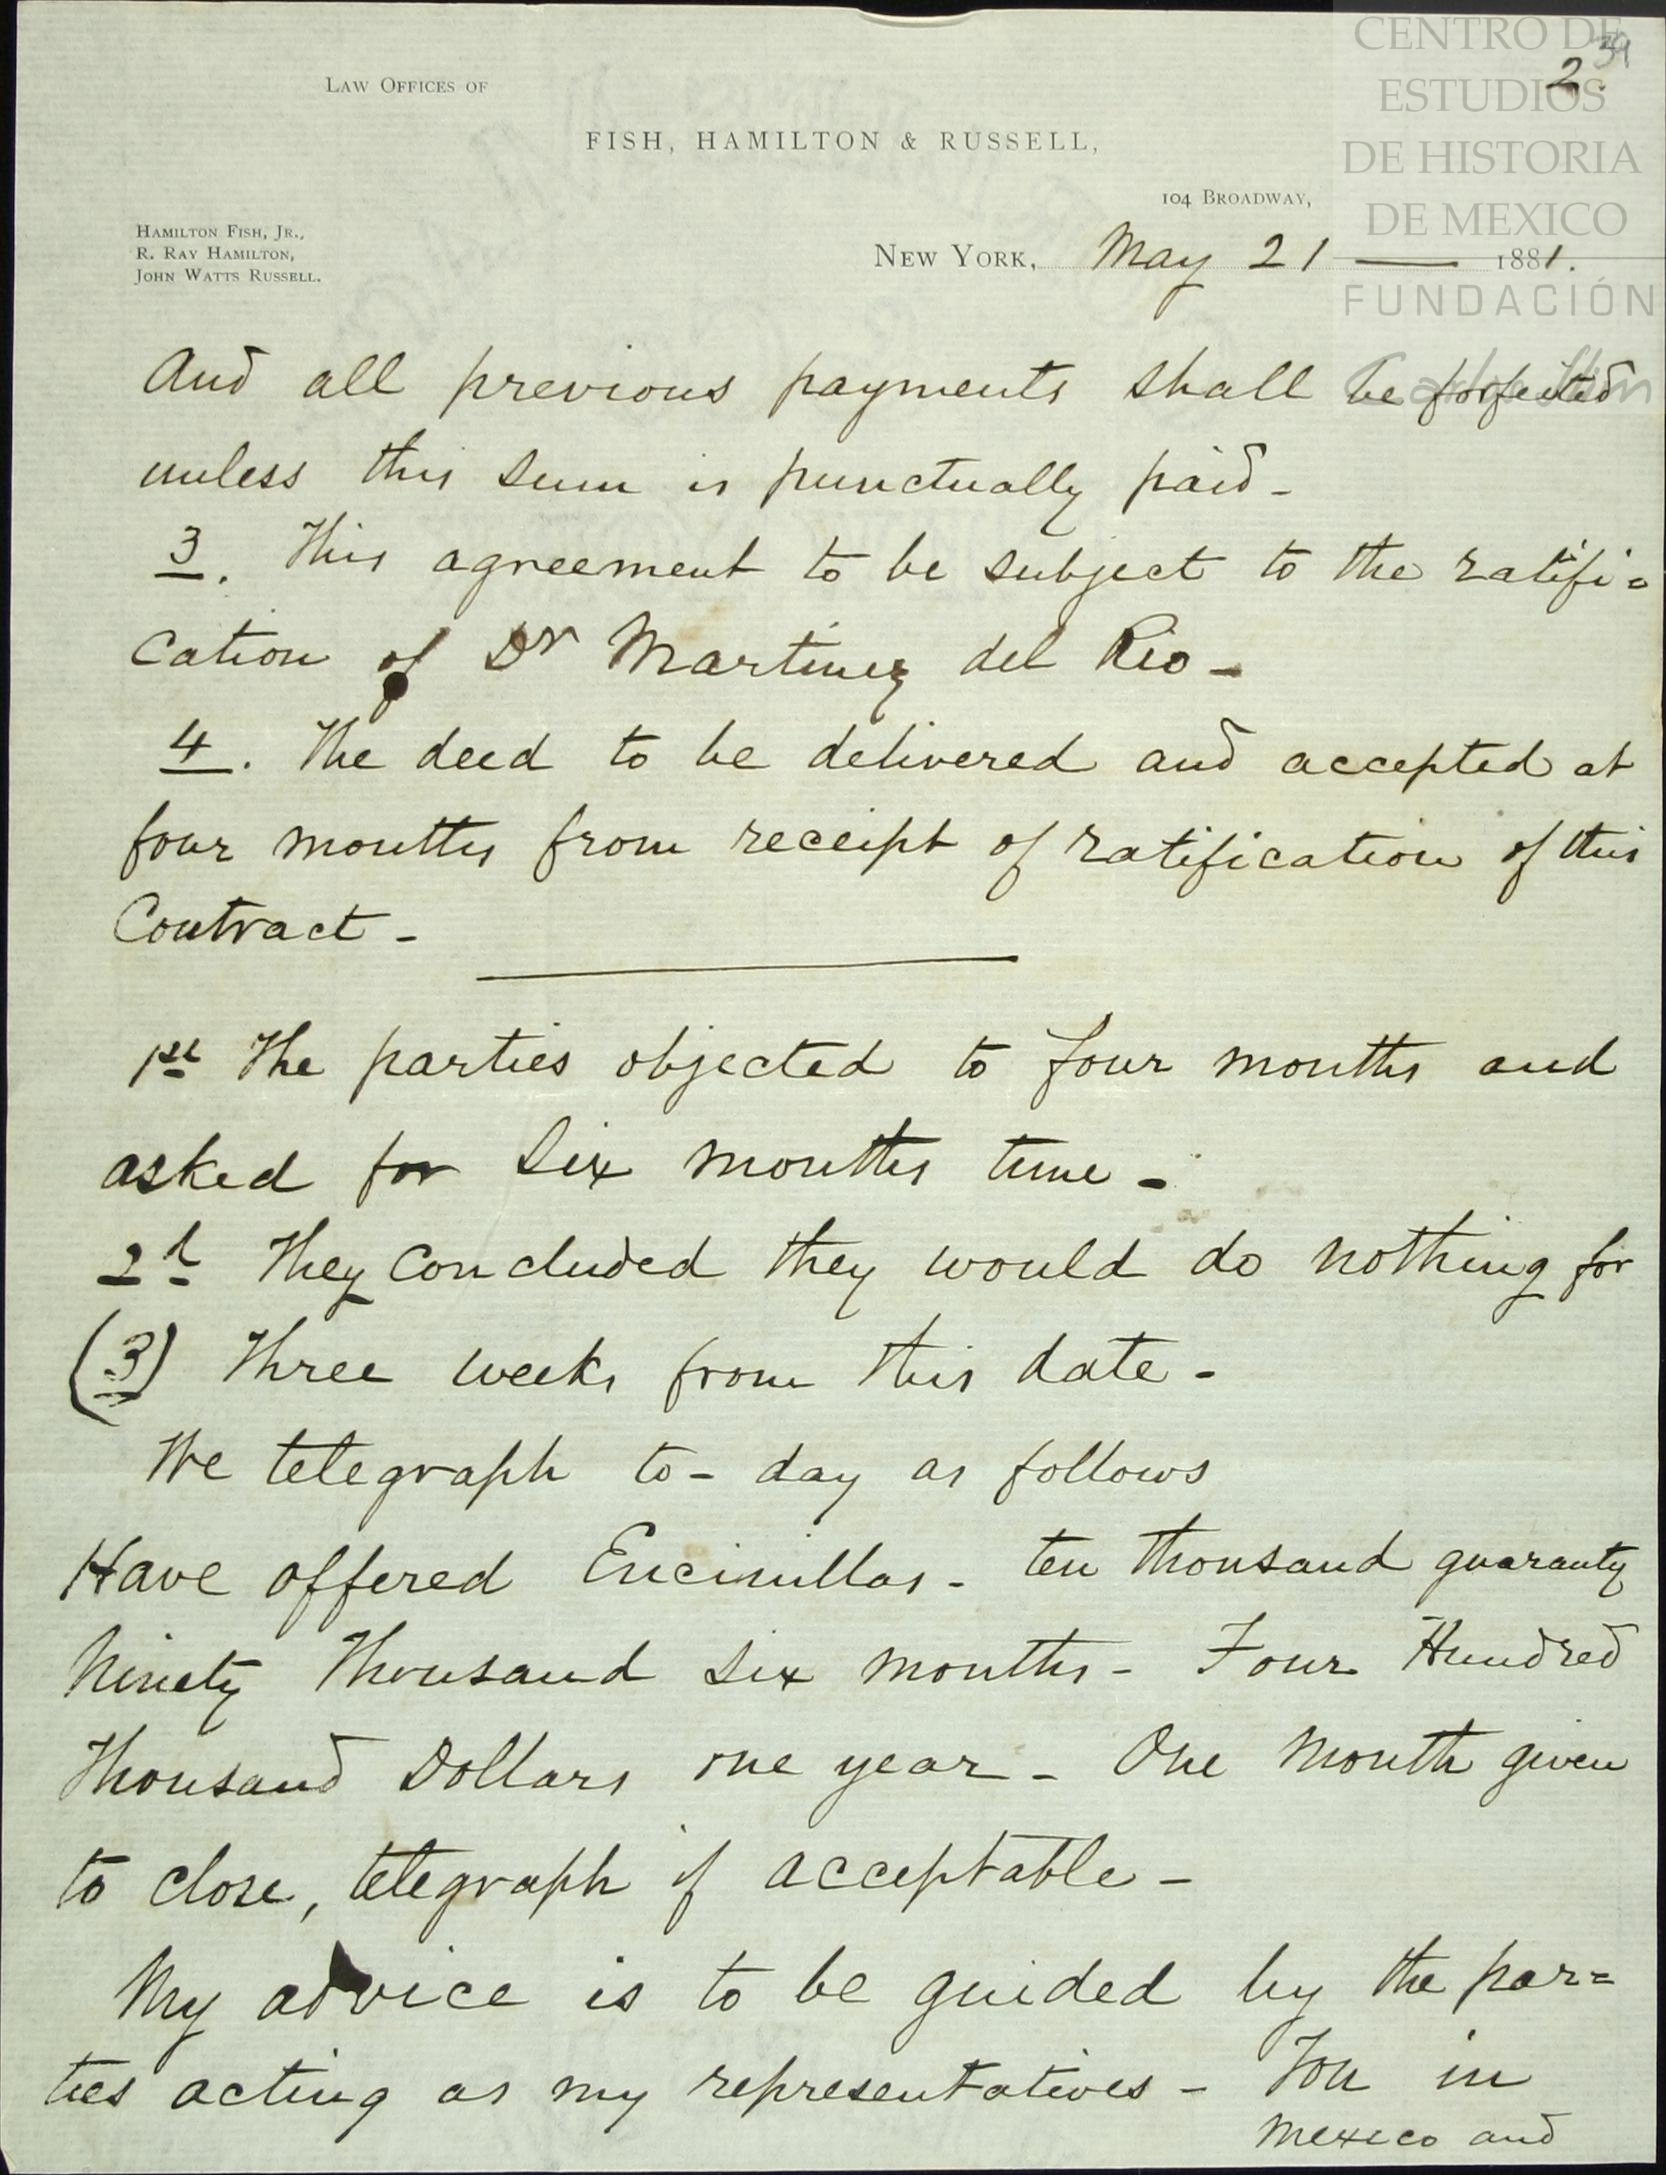 CENTRO DE
ESTUDIOS
DE HISTORIA
DE MEXICO
FUNDACIÓN
Carlos Slim
39
2.
LAW OFFICES OF
FISH, HAMILTON & RUSSELL,
104 BROADWAY,
HAMILTON FISH, JR.,
R. RAY HAMILTON,
JOHN WATTS RUSSELL.
NEW YORK, May 21 — 1881.
And all previous payments shall be forfeited
unless this sum is punctually paid -
3. This agreement to be subject to the ratifi=
cation of Dr Martinez del Rio -
4. The deed to be delivered and accepted at
four months from receipt of ratification of this
Contract -
1st The parties objected to four months and
asked for six months time -
2d They concluded they would do nothing for
(3) Three weeks from this date -
We telegraph to-day as follows
Have offered Encinillas - ten thousand guaranty
Ninety Thousand six months - Four Hundred
Thousand Dollars one year - One month given
to close, telegraph if acceptable -
My advice is to be guided by the par=
ties acting as my representatives - You in
Mexico and